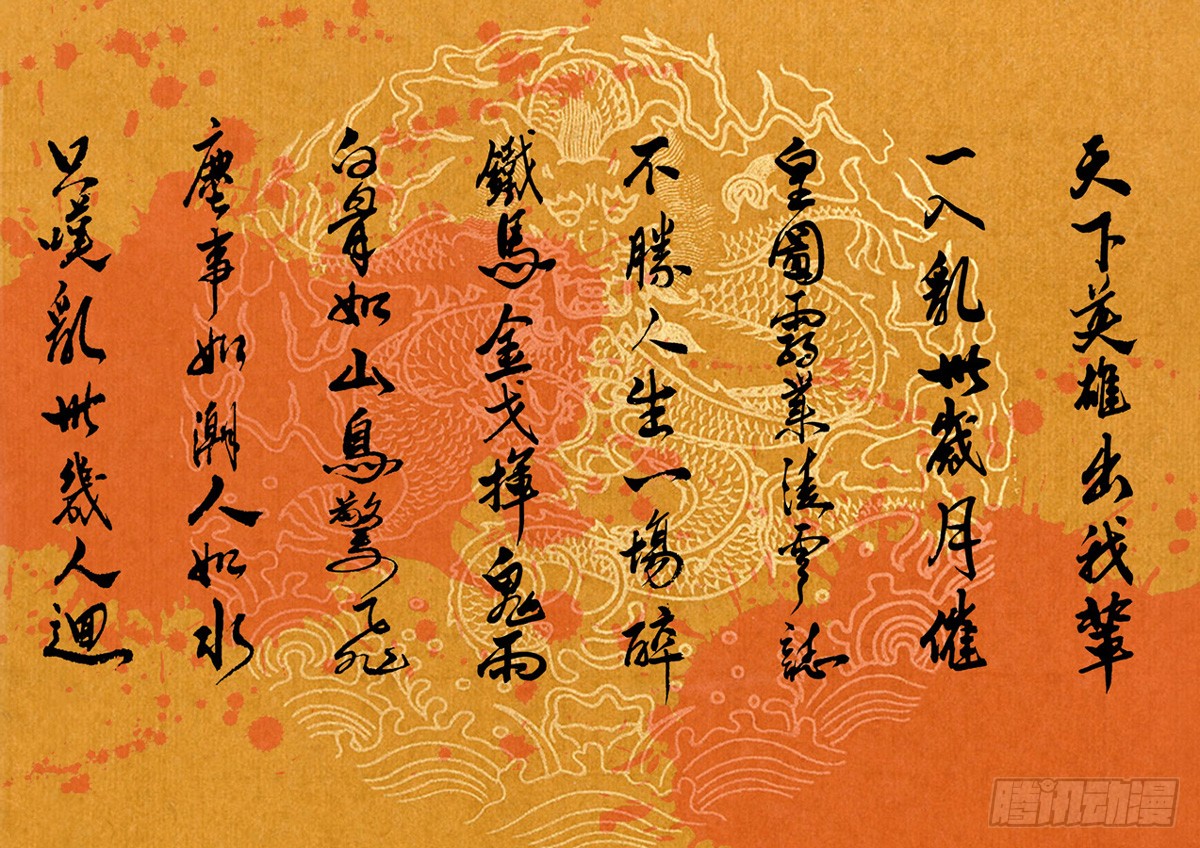 天下英雄出我輩
一入亂世歲月催
皇圖霸業談雲誌
不勝人生一場醉
鐵馬金戈揮鬼雨
白骨如山鳥驚飛
塵事如潮人如水
只嘆亂世幾人迴
腾讯动漫